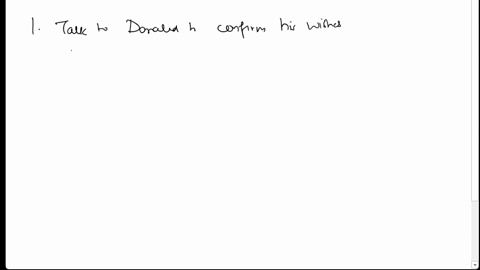 1. Talk to Donald to confirm his wishes